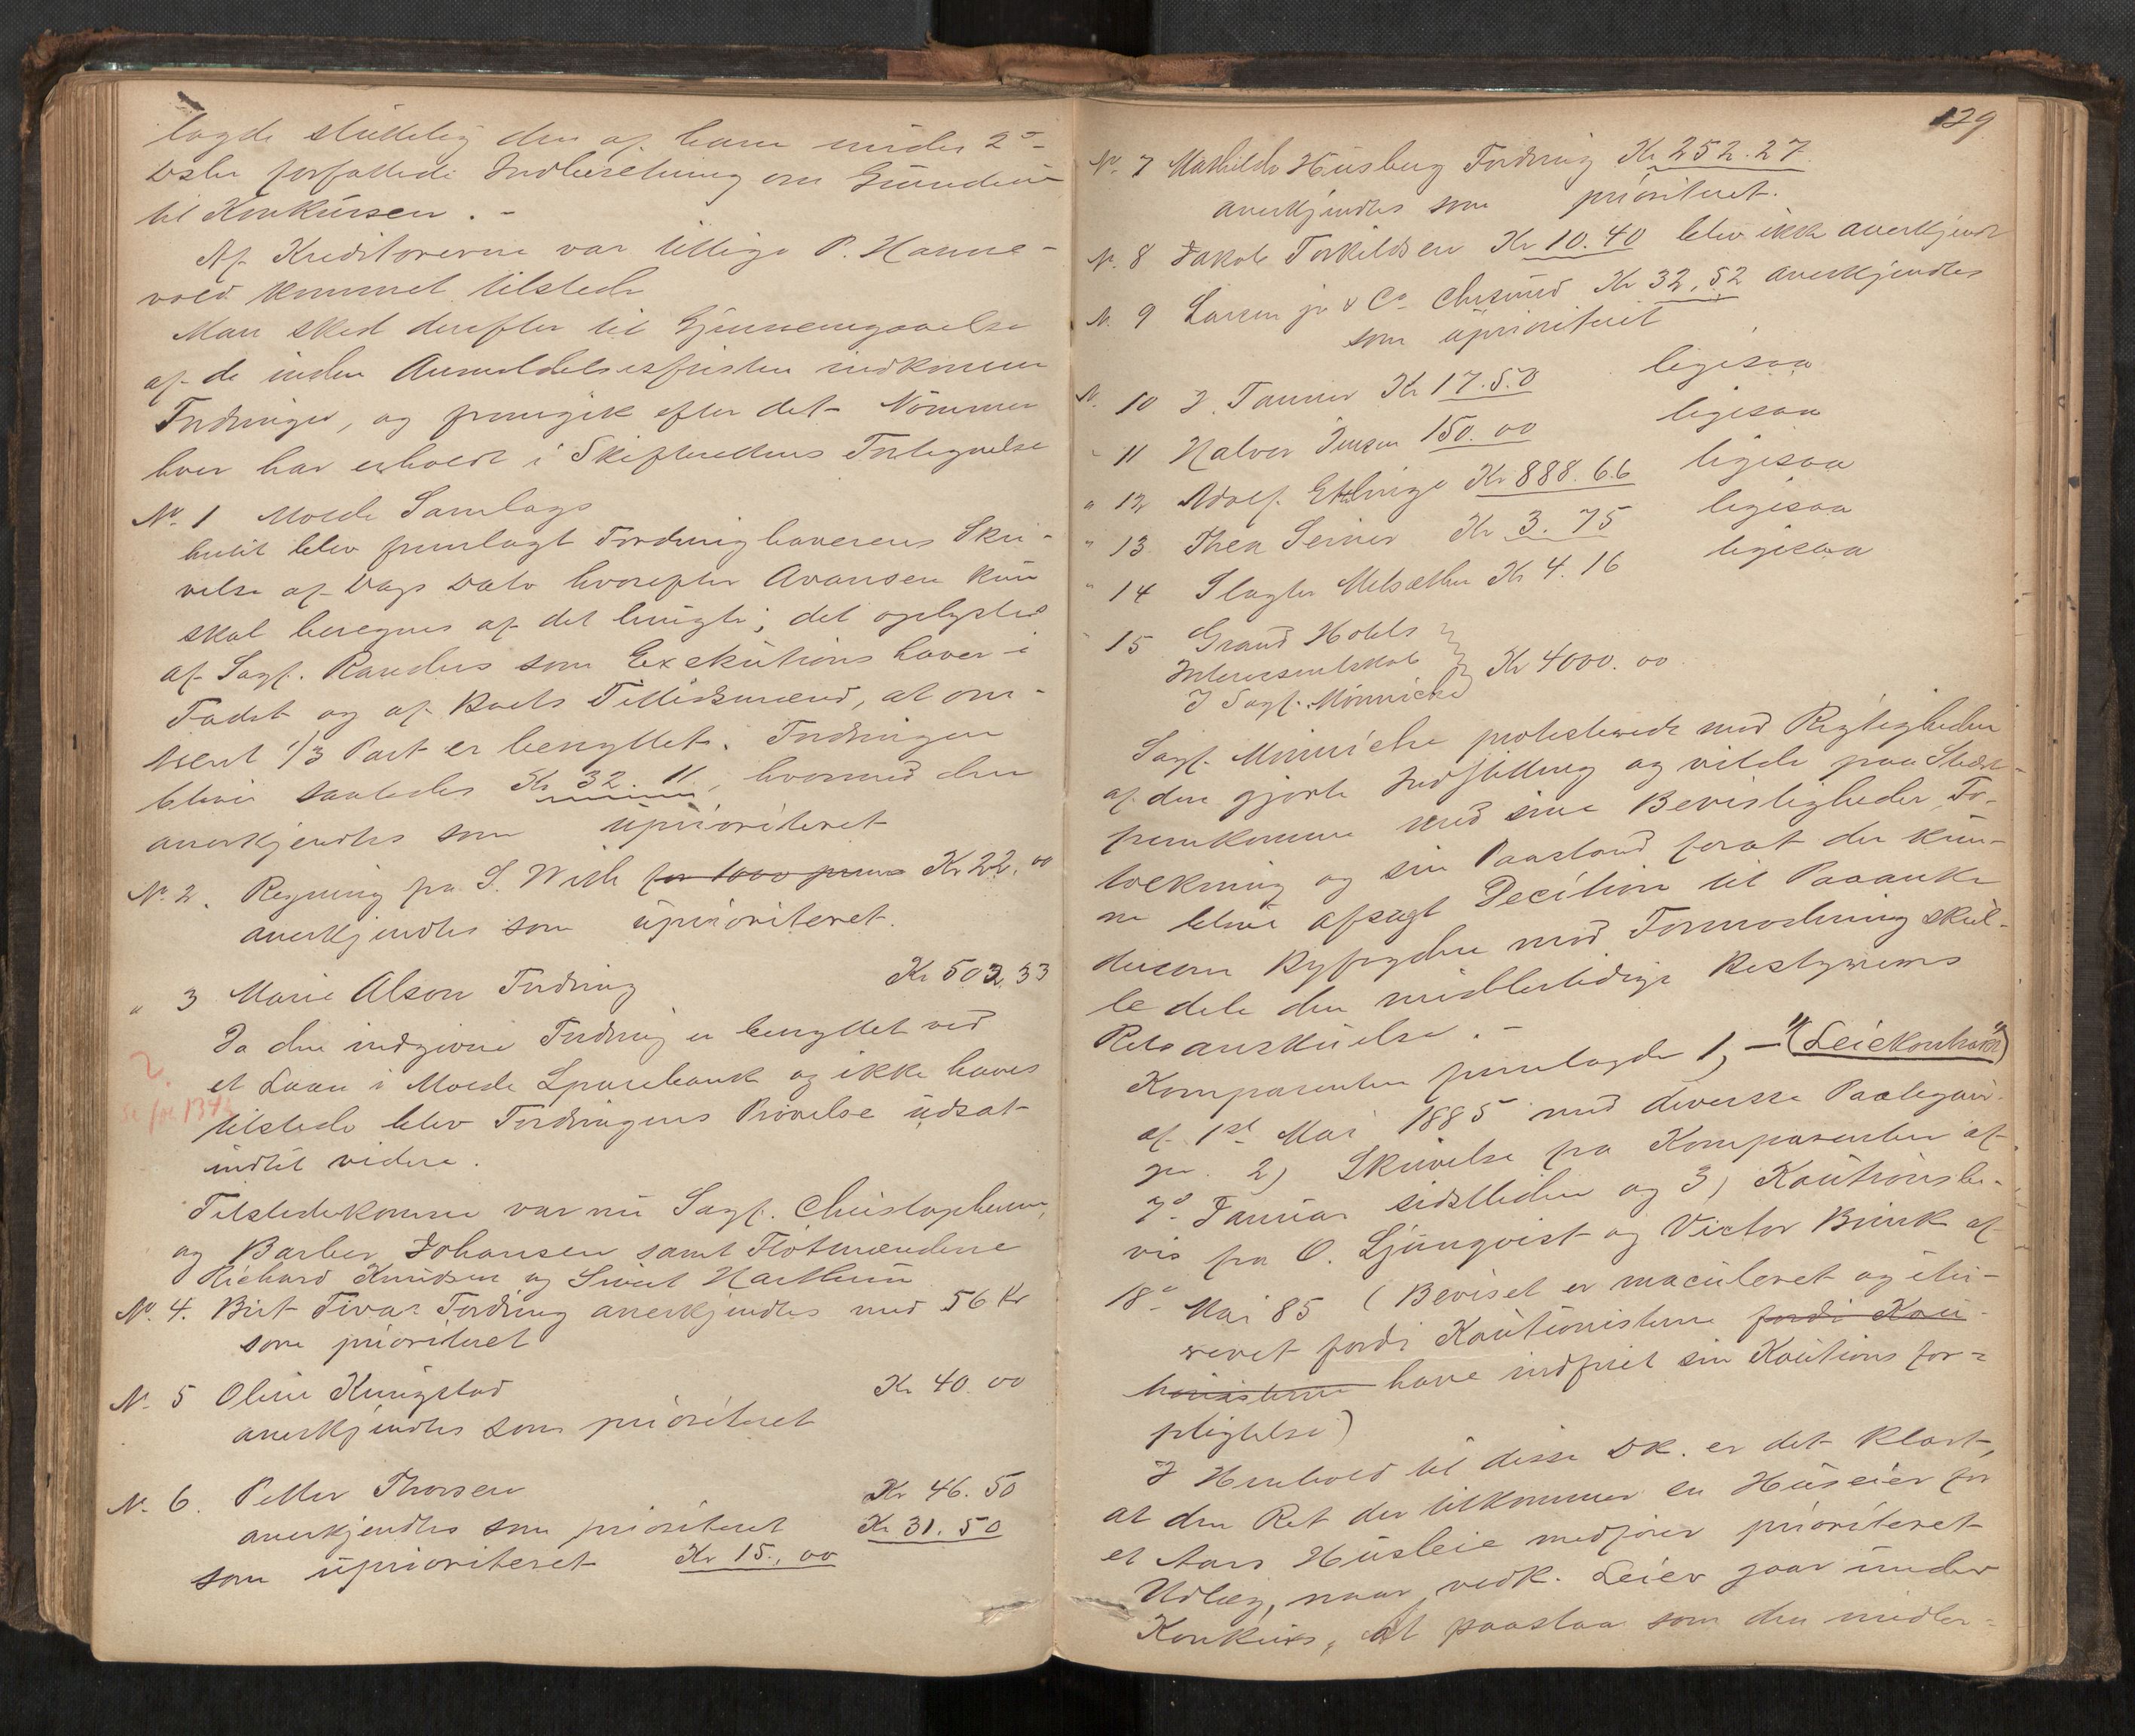 lagde skiftelig den af ham under 2den
dsbr forfattede Indberetning om Grunden
til Konkursen. -
Af Kreditorerne var tillige P. Hanne-
vold kommet tilstede
Man skred derefter til Gjennemgaaelse
af de inden Anmeldelsesfristen indkomne
Fordringer, og fremgik efter det Nummer
hver har erholdt i Skifterettens Fortegnelse
No. 1 Molde Samlags
hertil blev fremlagt Fordringhaverens Skri-
velse af Dags Dato hvorefter Avansen kun
skal beregnes af det brugte; det oplystes
af Sagf. Randers som Exekutionshaver i
Fadet og af Boets Tillidsmænd, at om-
trent 1/3 Part er benyttet. Fordringen
bliver saaledes Kr 32. 11, hvormed den
anerkjendtes som uprioriteret
No. 2. Regning fra S. Wiik for 1000 Kr 22.00
anerkjendtes som uprioriteret.
" 3 Marie Alson Fordring Kr 503,33
Da den indgivne Fordring er benyttet ved
et Laan i Molde Sparebank og ikke haves
tilstede blev Fordringens Prøvelse udsat
indtil videre.
Tilstedekomne var nu Sagf. Christophersen,
og Barber Johansen samt Flotmændene
Richard Knudsen og Sivert
No. 4. Birt Fordring anerkjendtes med 56 Kr
som prioriteret
N. 5 Oline Kringstad Kr 40.00
anerkjendtes som prioriteret
N. 6. Petter Thorsen Kr 46.50
anerkjendtes som prioriteret Kr 31.50
som uprioriteret Kr 15,00
129
N. 7 Mathilde Husberg Fordring Kr 252.27
anerkjendtes som prioriteret.
N. 8 Jakob Torkildsen Kr 10.40 blev ikke anerkjendt
N. 9 Larsen jr & Co Chrsund Kr 32,52 anerkjendtes
som uprioriteret
N. 10 J. Tanner Kr 17.50 ligesaa
" 11 Halvor Jensen 150.00 ligesaa
" 12 Adolf Ettlinge Kr 888.66 ligesaa
" 13 Thea Seiner Kr 3.75 ligesaa
" 14 Slagter Melsæther Kr 4.16 ligesaa
" 15 Grand Hotels
Interessentskab Kr 4000.00
I Sagf. Minniche
Sagf. Minniche protesterede mod Rigtigheden
af den gjorte Indstilling og vilde paa Stedet
fremkomme med sine Bevisligheder, For-
tolkning og sin Paastand forat der kun-
ne blive afsagt Decision til Paaanke
dersom Byfogden mod Formodning skul-
le dele den midlertidige Bestyrers
Retsanskuelse. -
Komparenten fremlagde 1, - "(Leiekontrakt)"
af 1st Mai 1885 med diverse Paategnin-
ger. 2) Skrivelse fra Komparenten af
7de Januar sidstleden og 3) Kautionsbe-
vis fra O. Ljungvist og Victor Brink af
18de Mai 85 (Beviset er maculeret og itu-
revet fordi Kautionisterne fordi Kau-
tionisterne have indfriet sin Kautionsfor-
pligtelse)
I Henhold til disse Dk. er det klart,
at den Ret der tilkommer en Huseier for
et Aars Husleie medfører prioriteret
Udlæg, naar vedk. Leier gaar under
Konkurs, at paastaa som den midler-